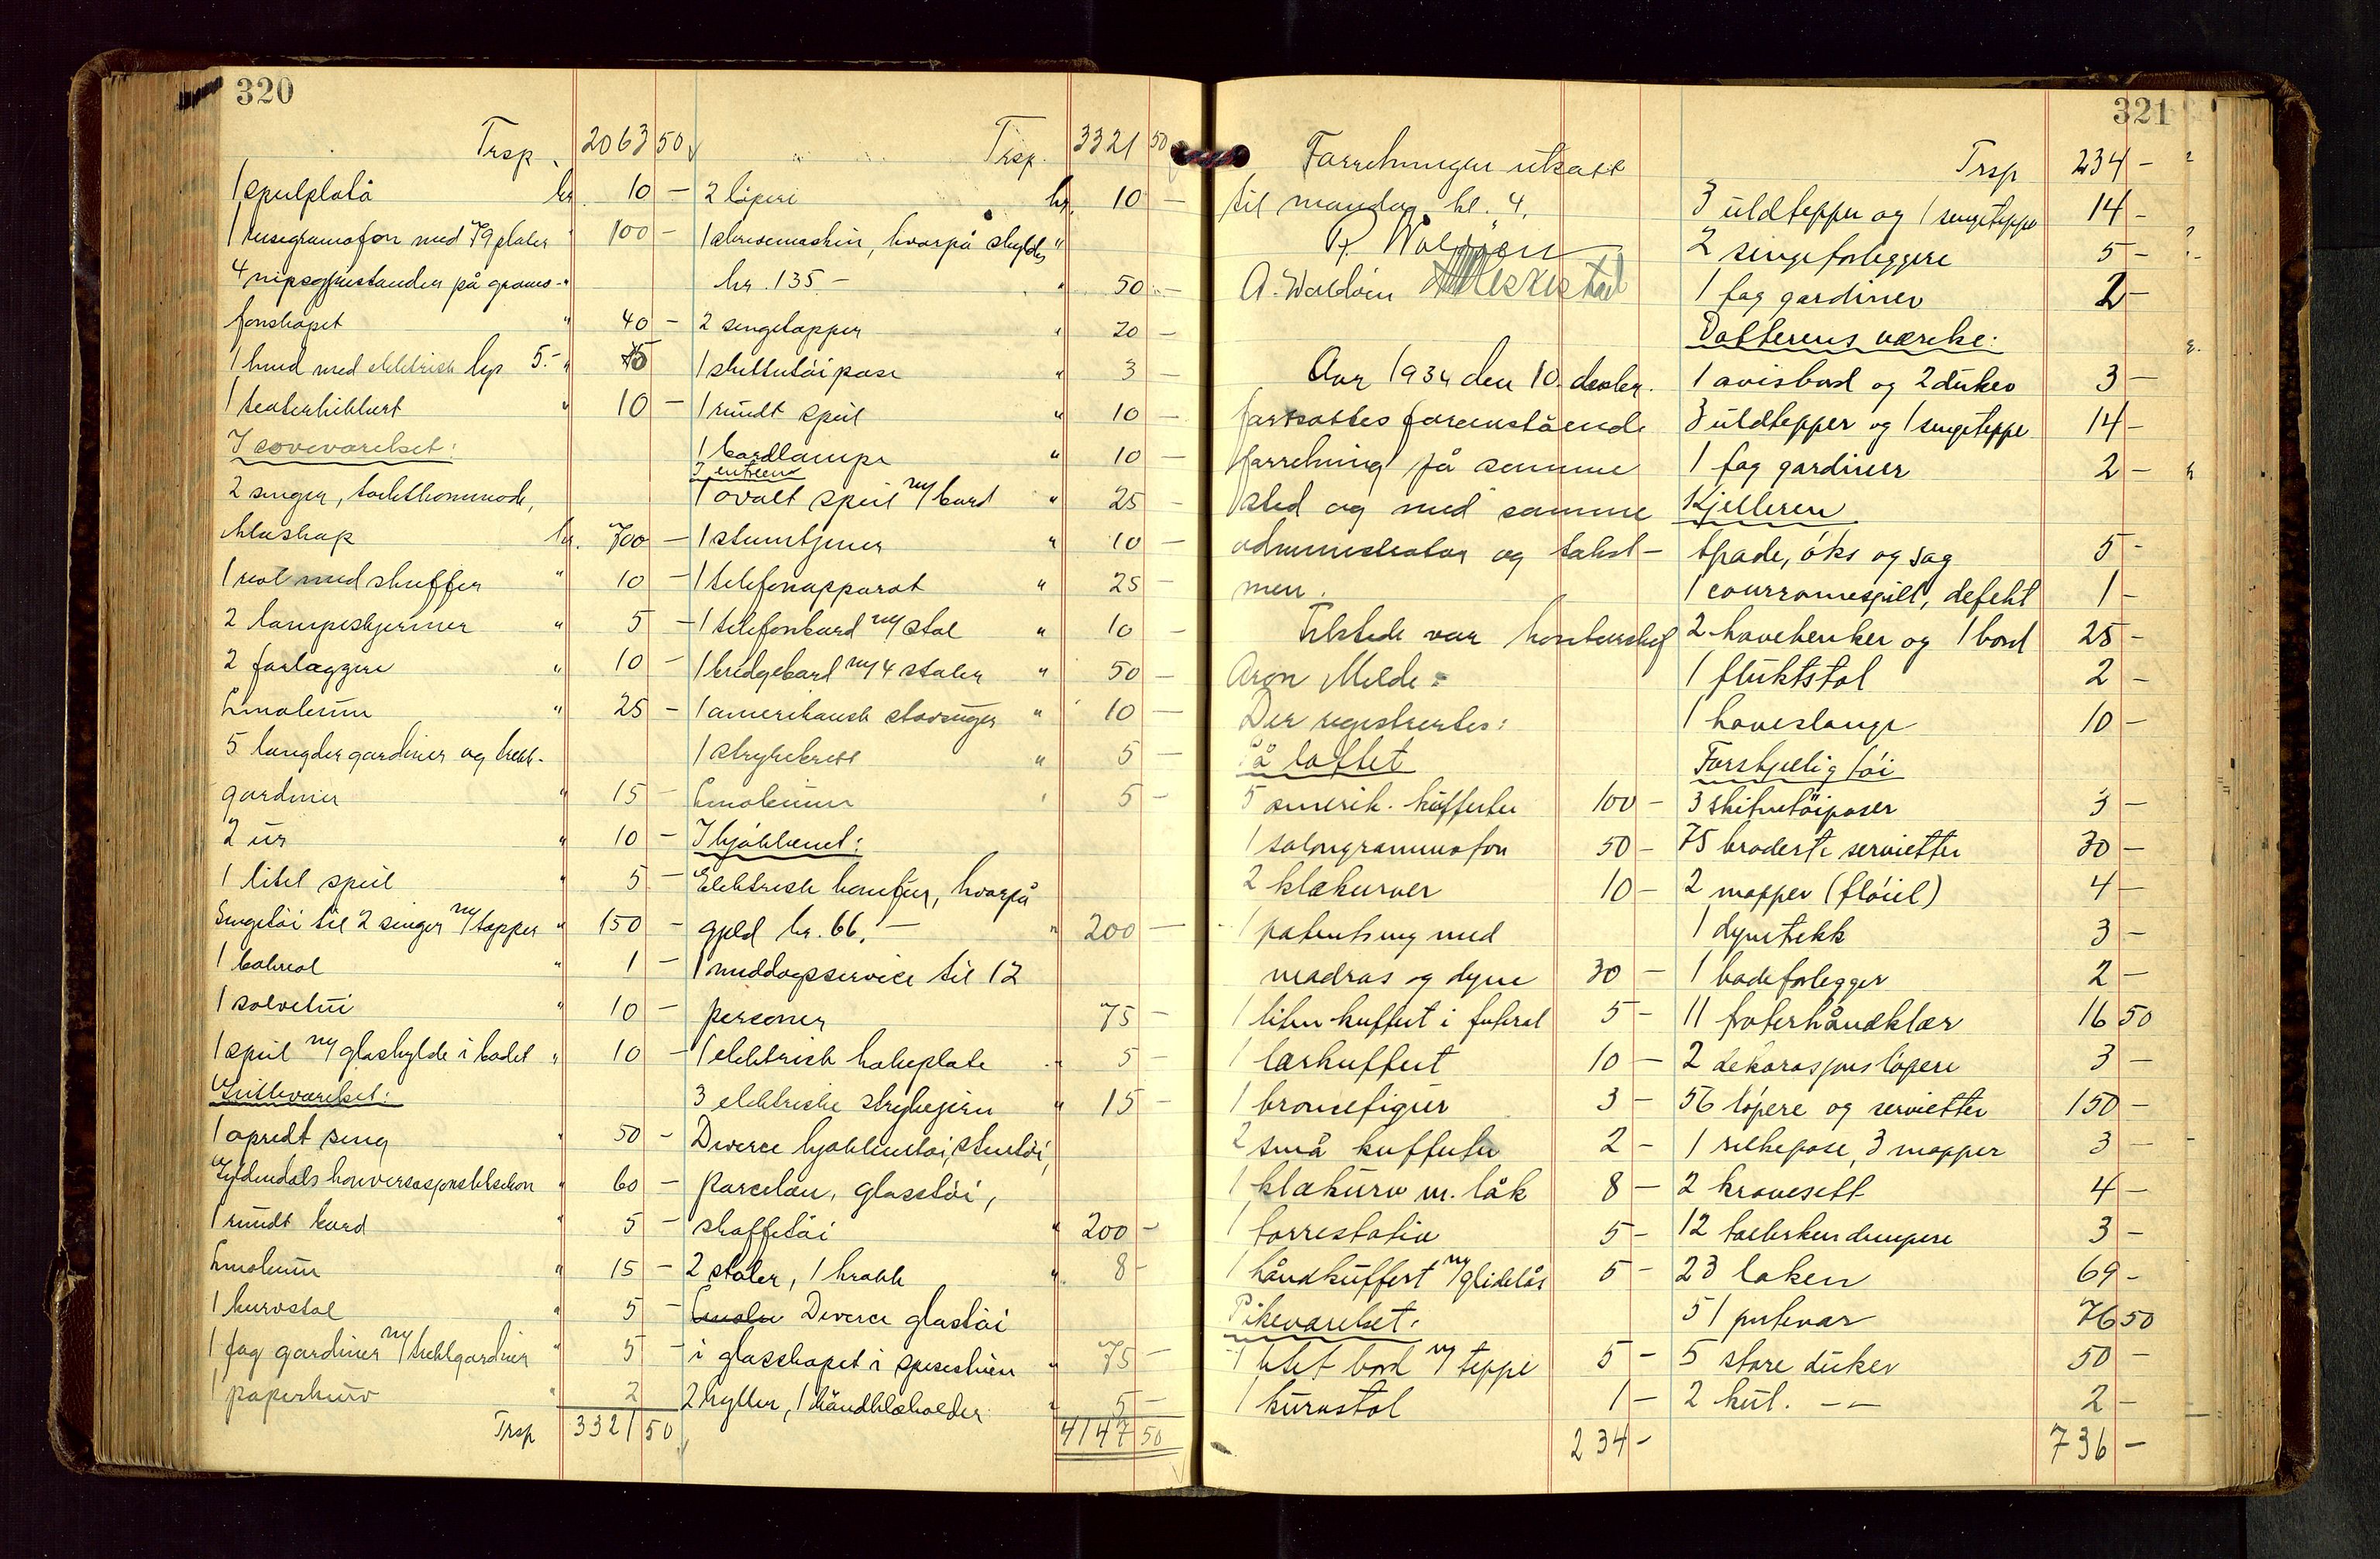 320
Trsp. 2063 50
1 speilplatå kr. 10 -
1 reisegramofon med 79 plater " 100 -
4 nipsgjenstander på gramo- "
fonskapet " 40 -
1 hund med elektrisk lys 5.- "
1 teaterkikkert " 10 -
I soveværelset:
2 senger, toiletkommode,
klæskap kr. 700 -
1 reol med skuffer " 10 -
2 lampeskjermer " 5 -
2 forlæggere " 10 -
Linoleum " 25 -
5 længder gardiner og trekk-
gardiner " 15 -
2 ur " 10 -
1 litet speil " 5 -
Sengetøi til 2 senger m/tepper " 150 -
1 1 -
1 10 -
1 speil m/glashylde i badet " 10 -
Gutteværelset:
1 opredt seng " 50 -
Gyldendals konversasjonsleksikon " 60 -
1 rundt bord " 5 -
Linoleum " 15 -
1 kurvstol " 5 -
1 fag gardiner m/trekkgardiner " 5 -
1 papirkurv " 2
Trsp 3321 50
Trsp. 3321 50
2 løpere kr. 10 -
1 skrivemaskin, hvorpå skyldes "
kr. 135 - " 50 -
2 sengetepper " 20 -
1 skittentøipose " 3 -
1 rundt speil " 10 -
1 bordlampe " 10 -
I entreen
1 ovalt speil m/bord " 25 -
1 stumtjener " 10 -
1 telefonapparat " 25 -
1 telefonbord m/stol " 10 -
1 bridgebord m/4 stoler " 50 -
1 amerikansk støvsuger " 10 -
1 strykebrett " 5 -
Linoleum " 5 -
I kjøkkenet:
Elektrisk komfur, hvorpå
gjeld kr. 66. - " 200 -
1 middagsservice til 12
personer 75 -
1 elektrisk kokeplate " 5 -
3 elektriske strykejern " 15 -
Diverse kjøkkentøi, stentøi,
Porcelæn, glasstøi,
skaffetøi " 200 -
2 stoler, 1 krakk " 8 -
Diverse glastøi
i glasskapet i spisestuen " 75 -
2 hyller, 1 håndklæholder " 5 -
4147 50
321
Forretningen utsatt
til mandag kl. 4.
A. Waldøen
Aar 1934 den 10. desbr.
fortsattes foranstående
forretning på samme
sted og med samme
administrator og takst-
men.
Tilstede var kontorchef
Aron Melde.
Der registrertes:
På loftet
5 amerik. kufferter 100 -
1 salongrammofon 50 -
2 klækurver 10 -
1 patentseng med
madras og dyne 30 -
1 liten kuffert i futeral 5 -
1 lærkuffert 10 -
1 broncefigur 3 -
2 små kufferter 2 -
1 klækurv m. låk 8 -
1 tørrestativ 5 -
1 håndkuffert m/glidelås 5 -
Pikeværelset:
1 litet bord m/teppe 5 -
1 kurvstol 1 -
234 -
Trsp 234 -
3 uldtepper og 1 sengeteppe 14 -
2 sengeforleggere 5 -
1 fag gardiner 2 -
Datterens værelse:
1 avisbord og 2 duker 3 -
3 uldtepper og 1 sengeteppe 14 -
1 fag gardiner 2 -
Kjelleren
Spade, øks og sag 5 -
1 defekt 1 -
2 havebenker og 1 bord 25 -
1 fluktstol 2 -
1 haveslange 10 -
Forskjelig tøi
3 skitnetøiposer 3 -
75 broderte servietter 30 -
2 mapper (fløiel) 4 -
1 dynetrekk 3 -
1 badeforlegger 2 -
11 froterhåndklær 16 50
2 dekorasjonsløpere 3 -
56 løpere og servietter 150 -
1 silkepose, 3 mapper 3 -
2 kravesett 4 -
12 3 -
23 laken 69 -
51 putevar 76 50
5 store duker 50 -
2 kul. - - 2 -
736 -